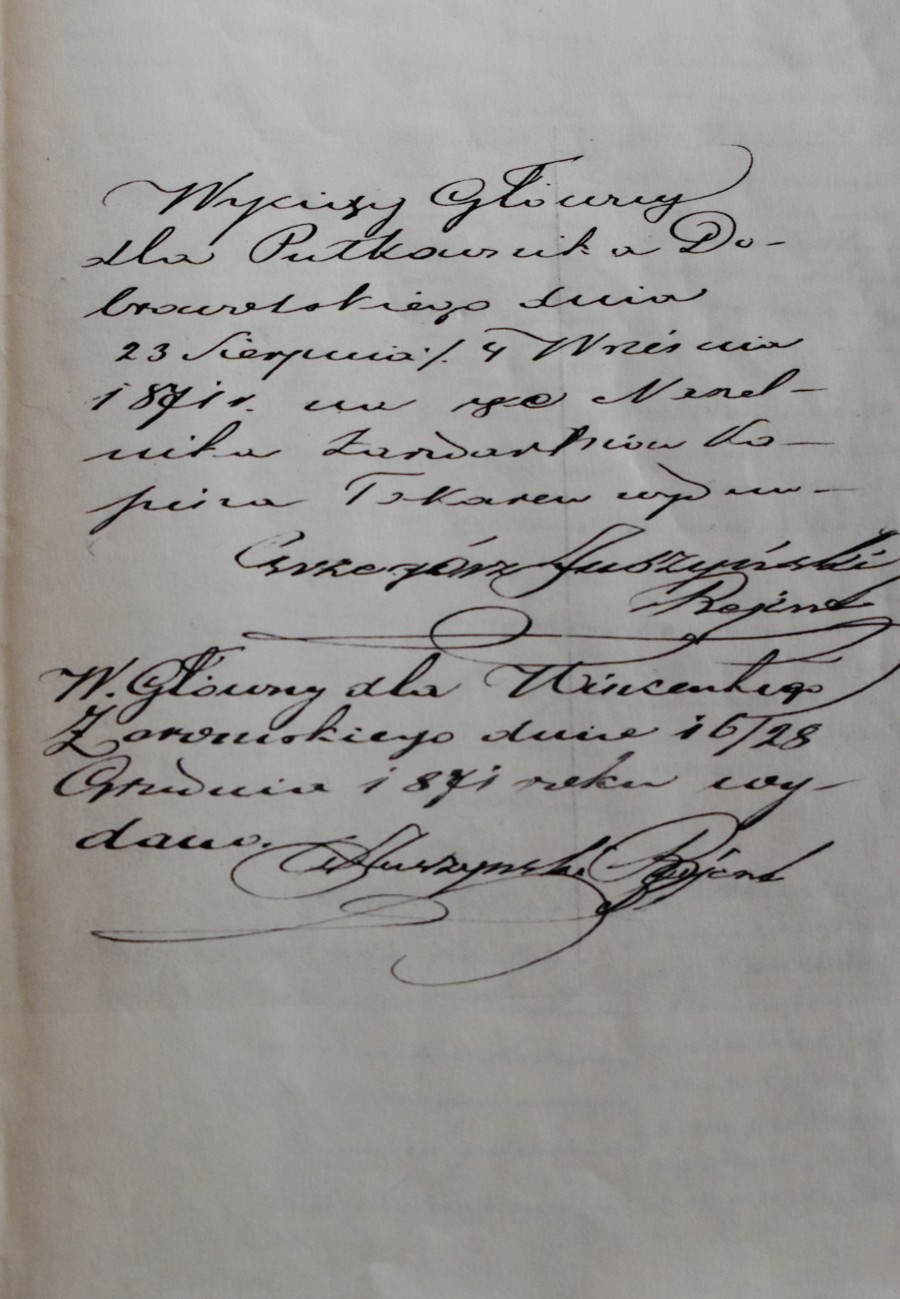 Wyciąg Główny
dla Pułkownika Do-
browolskiego dnia
23 Sierpnia / 4 Września
1871 r. na ręce Naczel-
nika Żandarmów Ka-
pitana Tokarew wydano
Grzegórz Juszyński
Rejent
W. Główny dla Wincentego
Żoromskiego dnia 16/28
Grudnia 1871 roku wy-
dano.
Juszyński Rejent